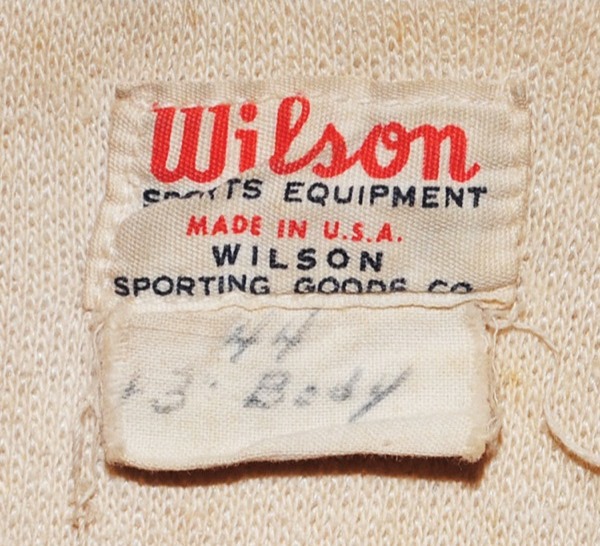 Wilson
SPORTS EQUIPMENT
MADE IN U.S.A.
WILSON
SPORTING GOODS CO.
44
+3" Body